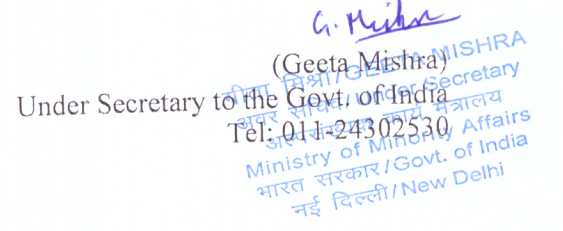 G. Mishra
(Geeta Mishra)
Under Secretary to the Govt. of India
Tel: 011-24302530
गीता मिश्रा/GEETA MISHRA
अवर सचिव/Under Secretary
अल्पसंख्यक कार्य मंत्रालय
Ministry of Minority Affairs
भारत सरकार/Govt. of India
नई दिल्ली/New Delhi